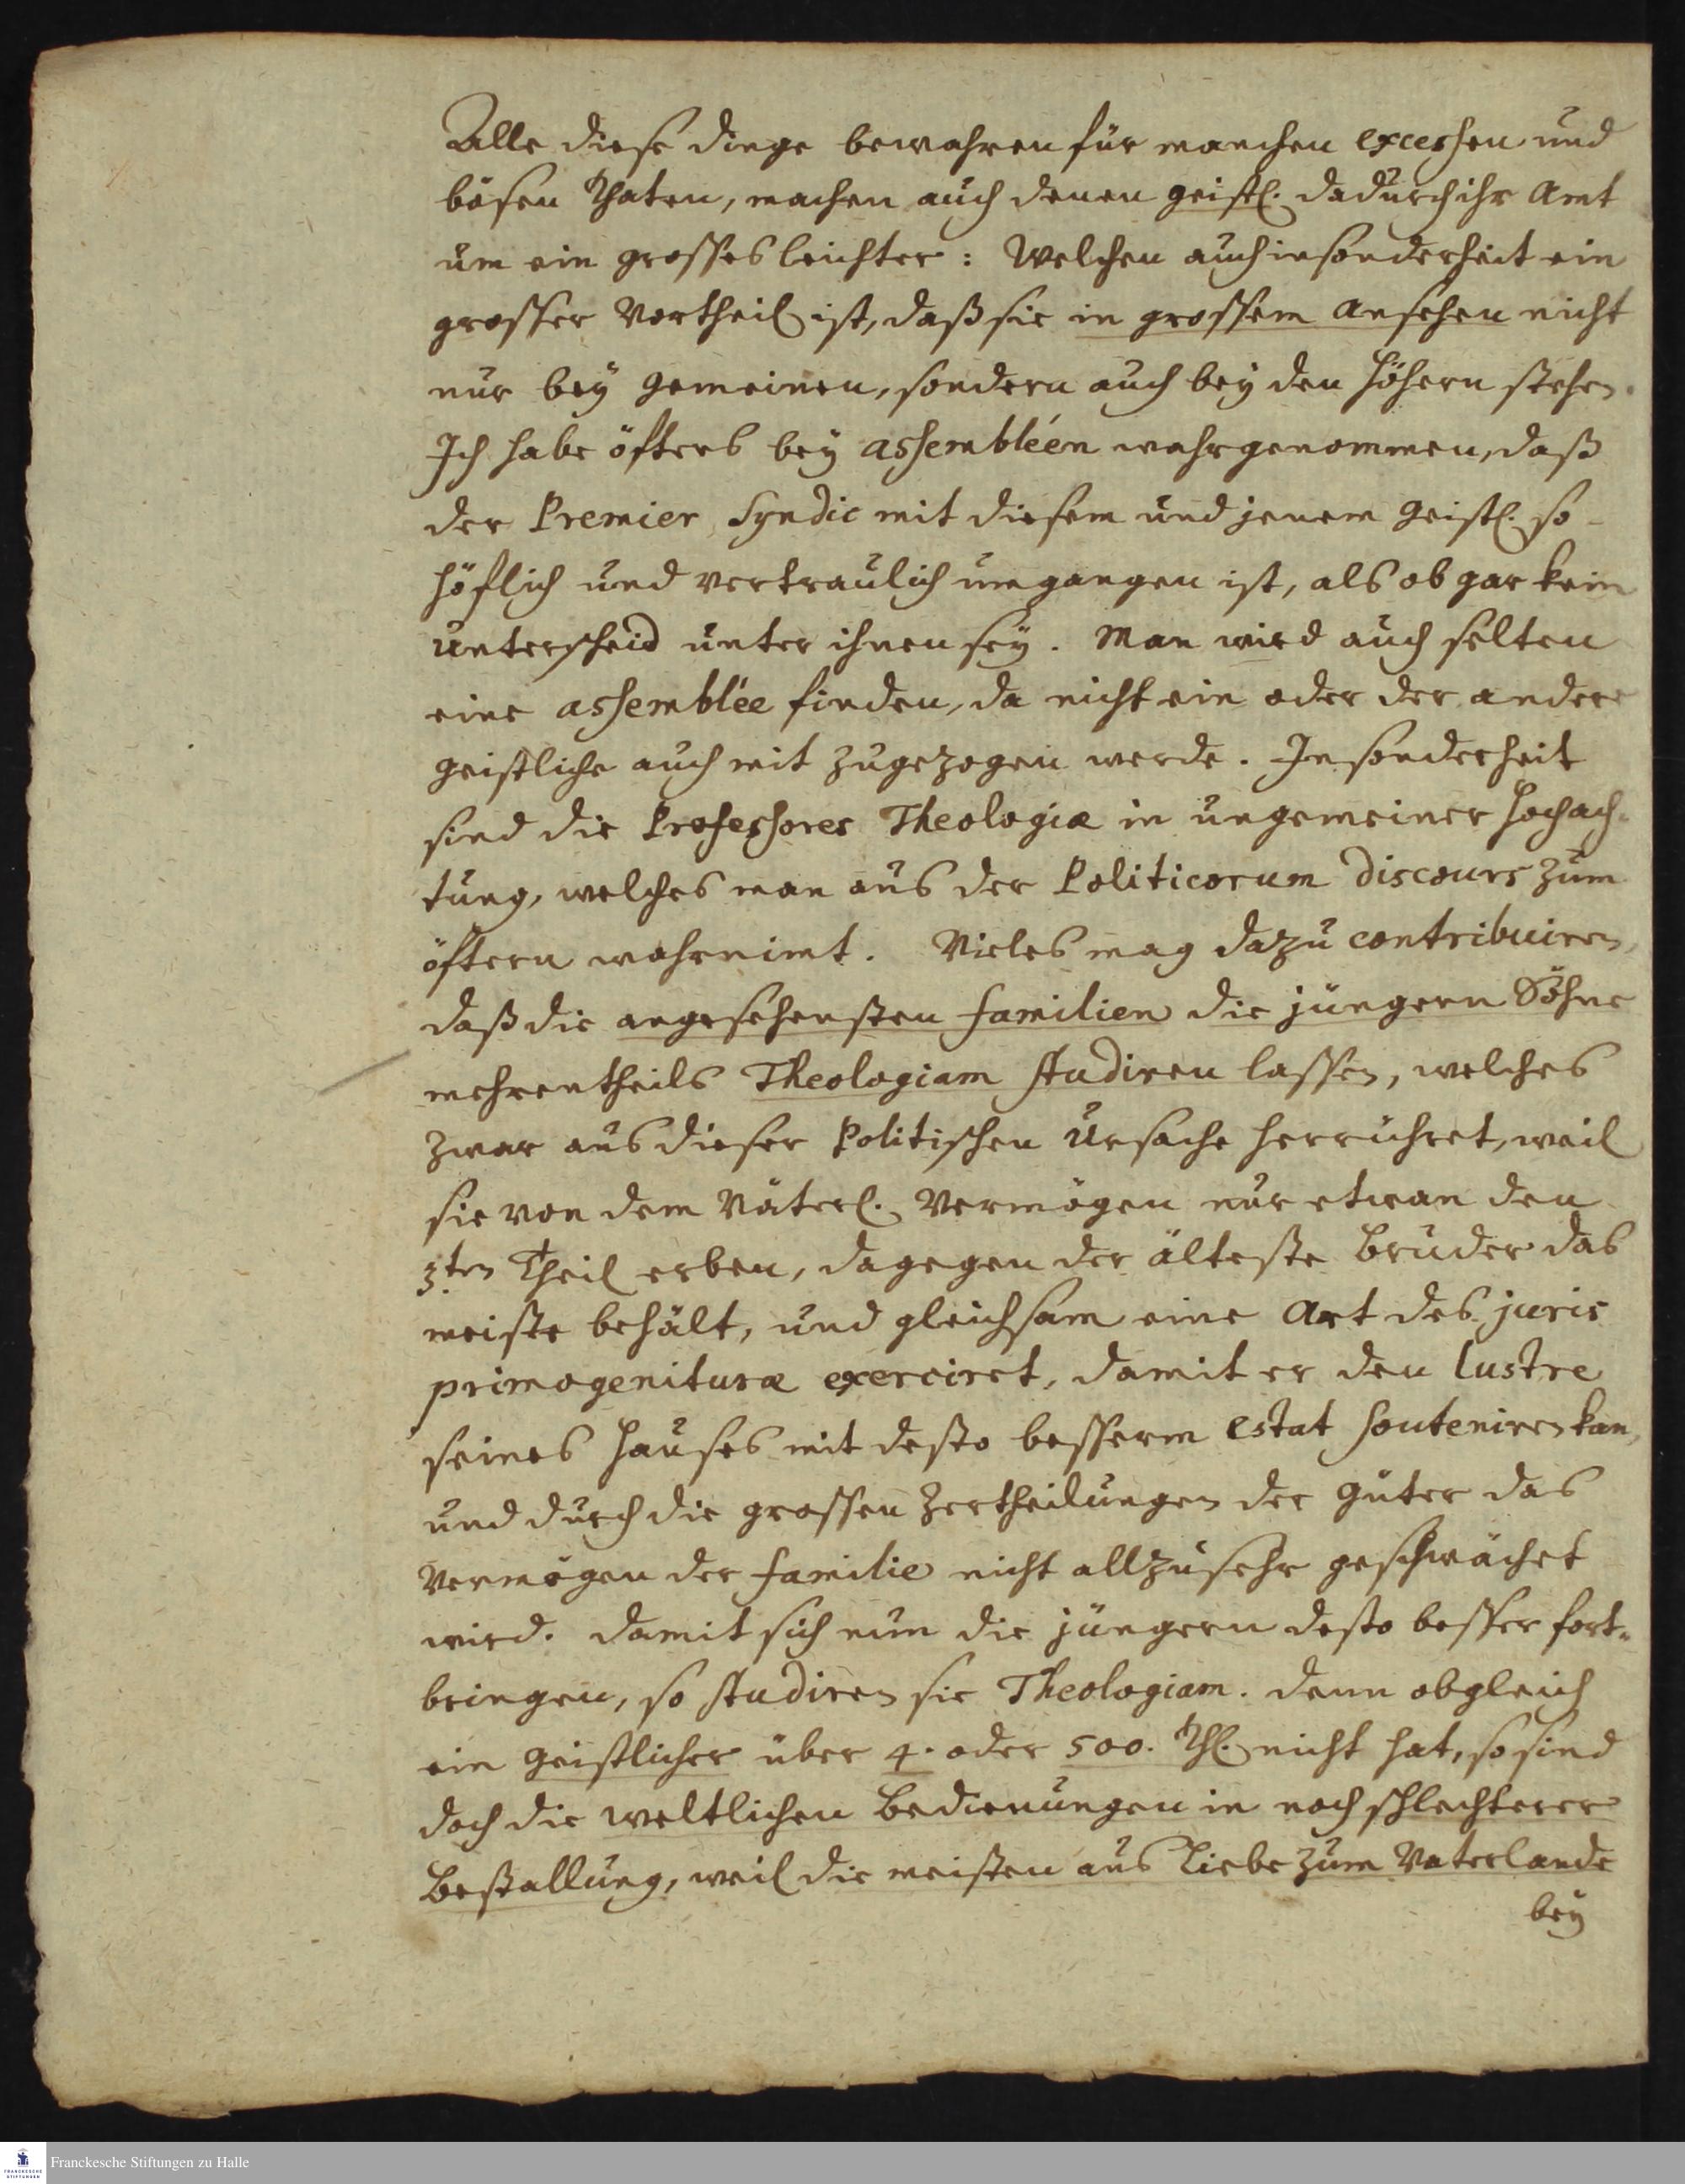 Alle diese dinge bewahren für manchen excessen und
bösen Thaten, machen auch denen geistl. dadurch ihr Amt
um ein grosses leichter: Welchen auch insonderheit ein
grosser Vortheil ist, daß sie in grossem Ansehen nicht
nur bey Gemeinen, sondern auch bey den Höhern stehen.
Ich habe öfters bey assembléen wahrgenommen, daß
der Premier Syndic mit diesem und jenem Geistl. so
höflich und vertraulich umgangen ist, als ob gar kein
Unterscheid unter ihnen sey. Man wird auch selten
eine assemblée finden, da nicht ein oder der andere
Geistliche auch mit zugezogen werde. Insonderheit
sind die Professores Theologiæ in ungemeiner Hochach-
tung, welches man aus der Politicorum Discours zum
öftern wahrnimt. Vieles mag dazu contribuiren,
daß die angesehensten familien die jüngern Söhne
mehrentheils Theologiam studiren lassen, welches
zwar aus dieser Politischen Ursache herrühret, weil
sie von dem Väterl. Vermögen nur etwan den
3ten Theil erben, dagegen der älteste Bruder das
meiste behält, und gleichsam eine Art des juris
primogenituræ exerciret, damit er den lustre
seines Hauses mit desto besserm estat souteniren kan,
und durch die grossen Zertheilungen der Güter das
Vermögen der familie nicht allzusehr geschwächet
wird. Damit sich nun die jüngern desto besser fort-
bringen, so studiren sie Theologiam. Denn obgleich
ein Geistlicher über 4. oder 500. Thl. nicht hat, so sind
doch die weltlichen Bedienungen in noch schlechterer
Bestallung, weil die meisten aus Liebe zum Vaterlande
bey
Franckesche Stiftungen zu Halle
FRANCKESCHE
STIFTUNGEN